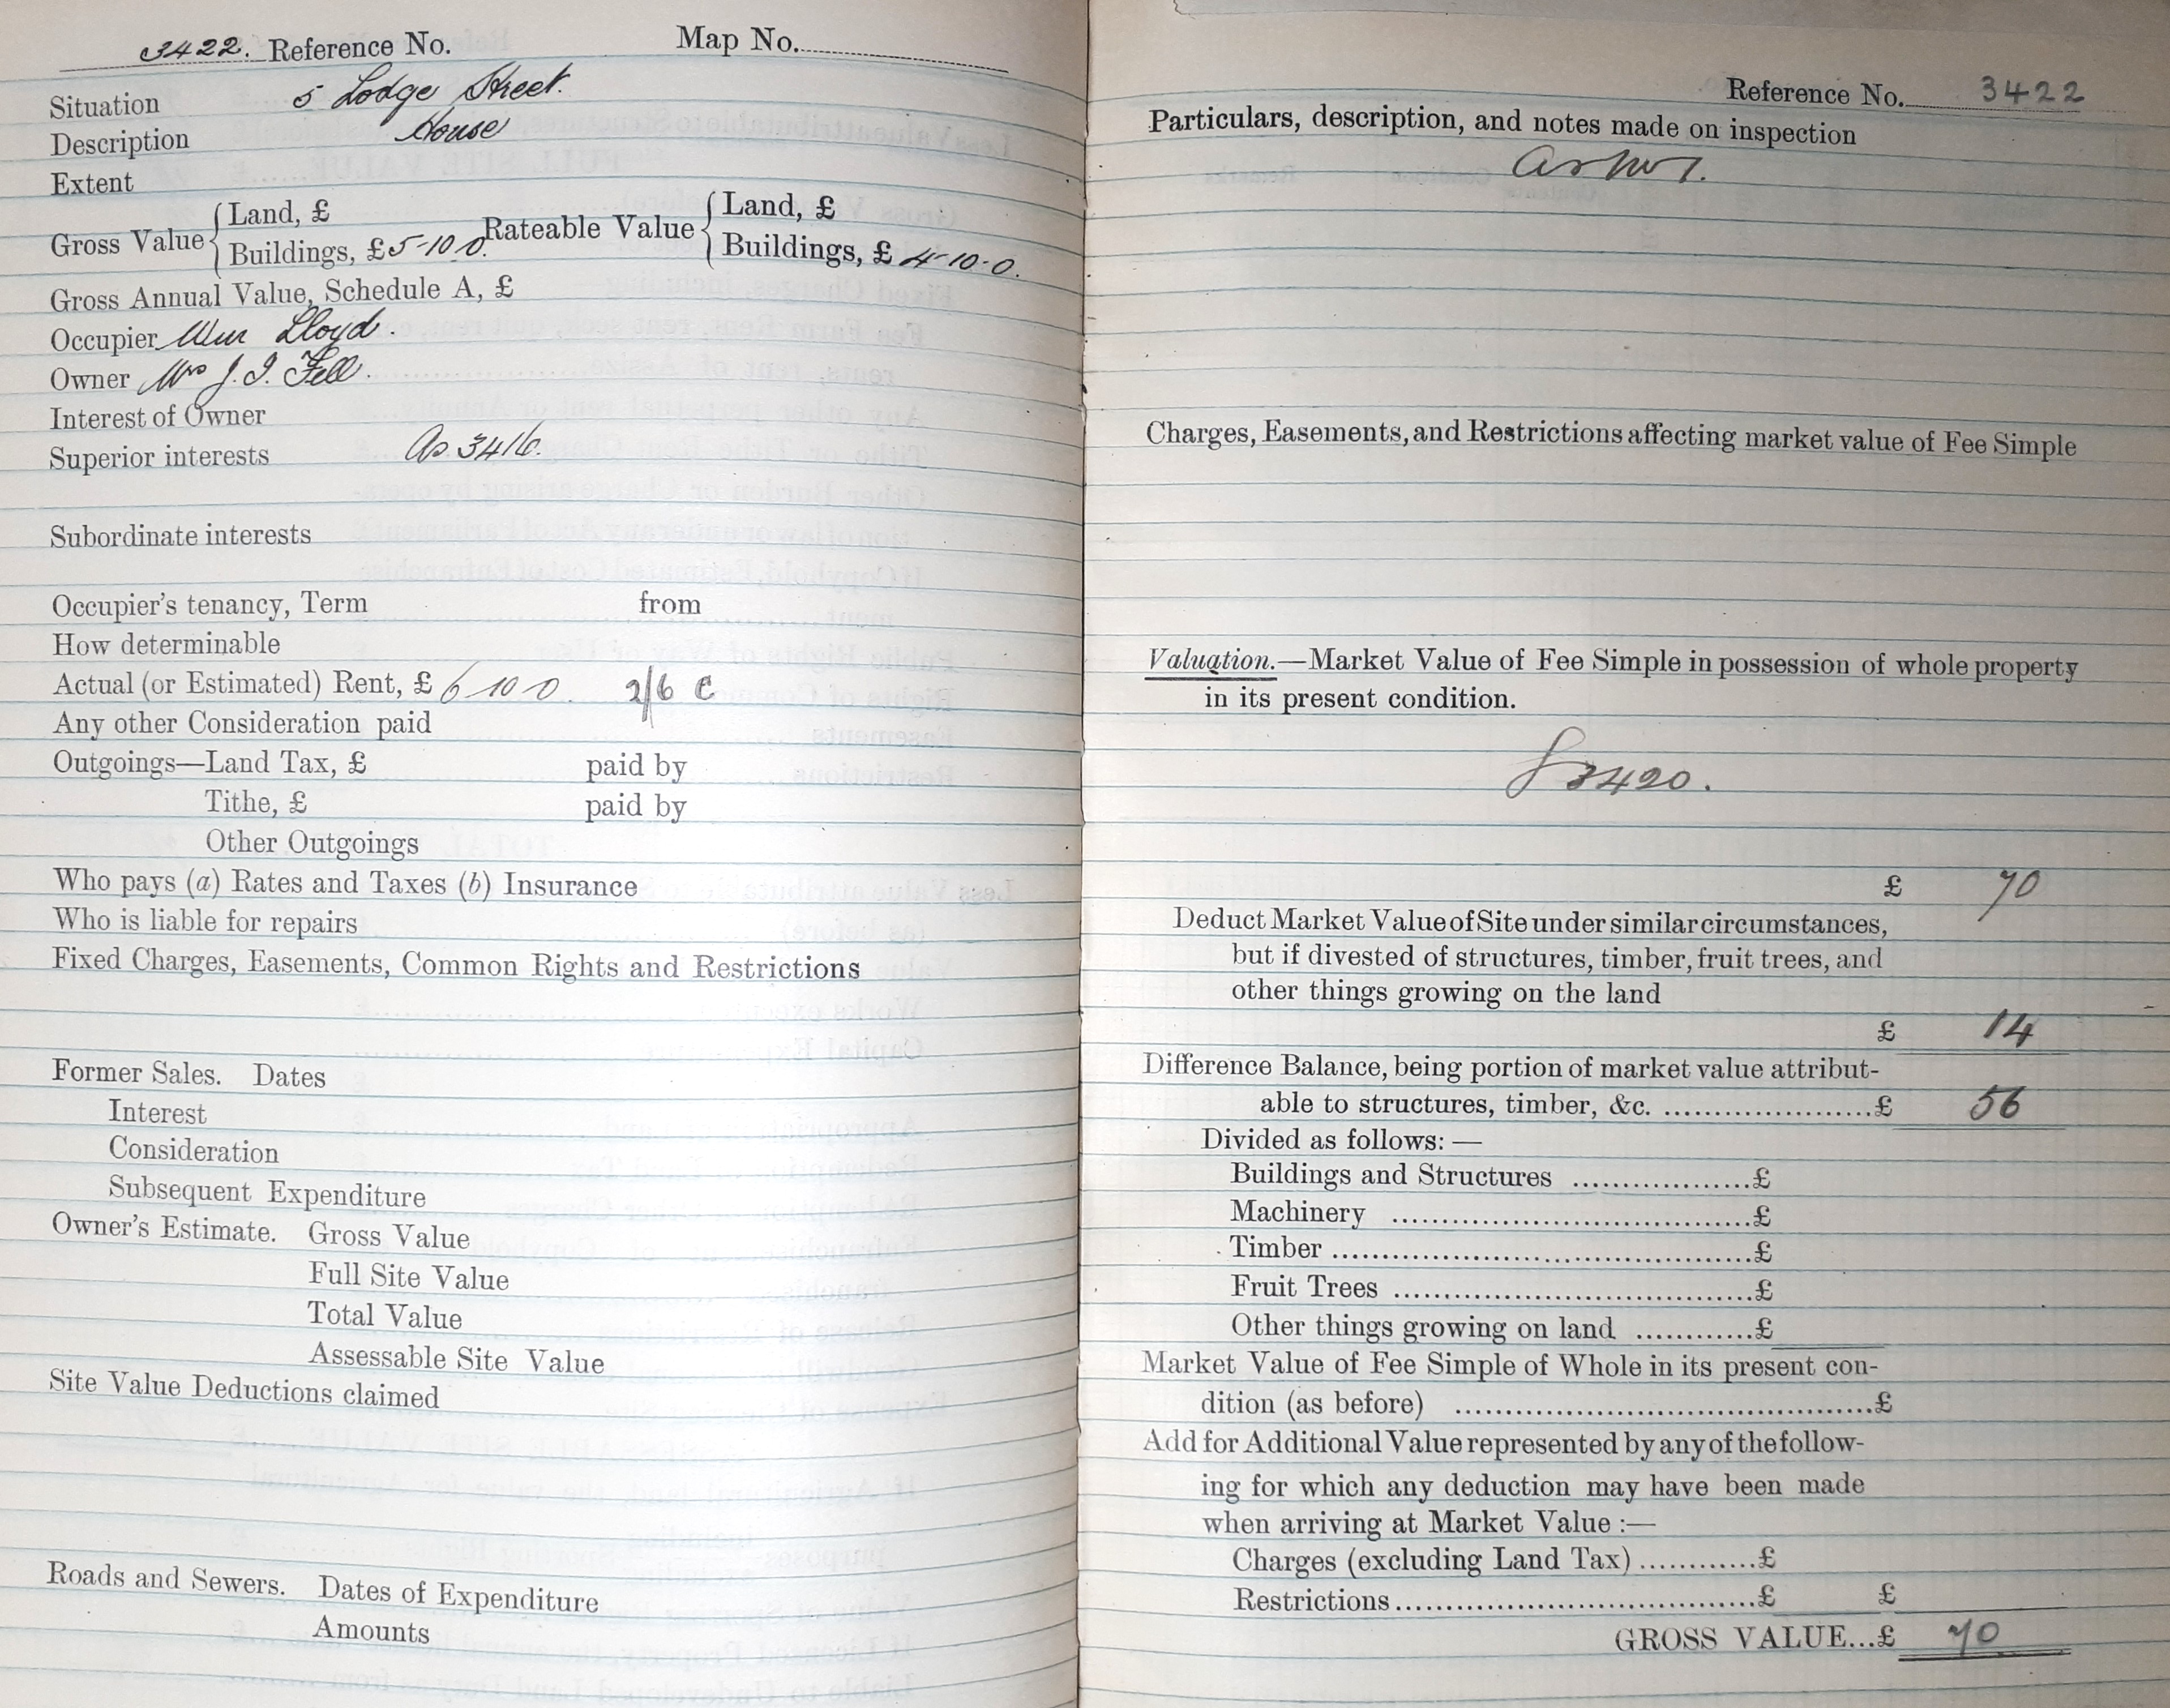 3422. Reference No. Map No.
Situation 5 Lodge Street.
Description House
Extent
Gross Value { Land, £ Rateable Value { Land, £
Buildings, £ 5-10-0. Buildings, £ 4-10-0.
Gross Annual Value, Schedule A, £
Occupier Wm Lloyd.
Owner Mrs J. I. Fell.
Interest of Owner
Superior interests As 3416.
Subordinate interests
Occupier's tenancy, Term from
How determinable
Actual (or Estimated) Rent, £ 6 10 0. 2/6 C
Any other Consideration paid
Outgoings—Land Tax, £ paid by
Tithe, £ paid by
Other Outgoings
Who pays (a) Rates and Taxes (b) Insurance
Who is liable for repairs
Fixed Charges, Easements, Common Rights and Restrictions
Former Sales. Dates
Interest
Consideration
Subsequent Expenditure
Owner's Estimate. Gross Value
Full Site Value
Total Value
Assessable Site Value
Site Value Deductions claimed
Roads and Sewers. Dates of Expenditure
Amounts
Reference No. 3422
Particulars, description, and notes made on inspection
as
Charges, Easements, and Restrictions affecting market value of Fee Simple
Valuation.—Market Value of Fee Simple in possession of whole property
in its present condition.
3420.
£ 70
Deduct Market Value of Site under similar circumstances,
but if divested of structures, timber, fruit trees, and
other things growing on the land
£ 14
Difference Balance, being portion of market value attribut-
able to structures, timber, &c. £ 56
Divided as follows:—
Buildings and Structures £
Machinery £
Timber £
Fruit Trees £
Other things growing on land £
Market Value of Fee Simple of Whole in its present con-
dition (as before) £
Add for Additional Value represented by any of the follow-
ing for which any deduction may have been made
when arriving at Market Value :—
Charges (excluding Land Tax) £
Restrictions £ £
GROSS VALUE...£ 70